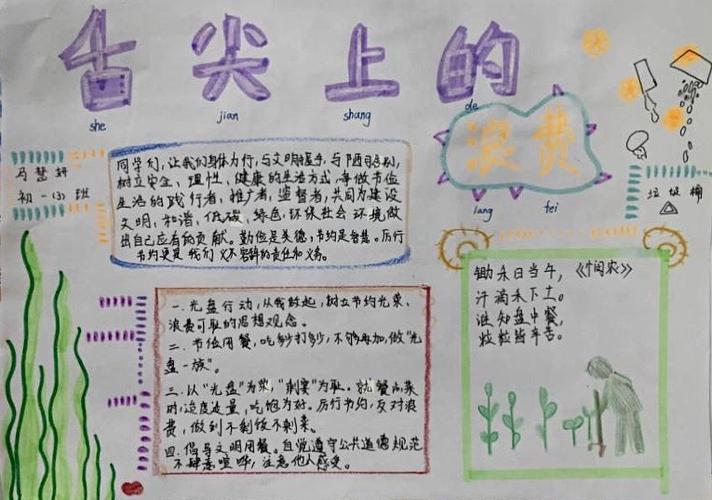 舌尖上的
she jian shang de
浪费
lang fei
马慧妍
初一(3)班
同学们,让我们身体力行,与文明握手,与陋习告别,
树立安全、理性、健康的生活方式,争做节俭
生活的践行者,推广者,监督者,共同为建设
文明,和谐,低碳,绿色,环保社会环境做
出自己应有的贡献。勤俭是美德,节约是智慧。厉行
节约更是我们义不容辞的责任和义务。
垃圾桶
一.光盘行动,从我做起,树立节约光荣、
浪费可耻的思想观念。
二.节俭用餐,吃多少打多少,不够再加,做“光
盘一族”。
三.以“光盘”为荣,“剩宴”为耻。就餐点菜
时,适度适量,吃饱为好。厉行节约,反对浪
费,做到不剩饭不剩菜。
四.倡导文明用餐。自觉遵守公共道德规范
不肆意喧哗,注意他人感受。
锄禾日当午,《悯农》
汗滴禾下土。
谁知盘中餐,
粒粒皆辛苦。